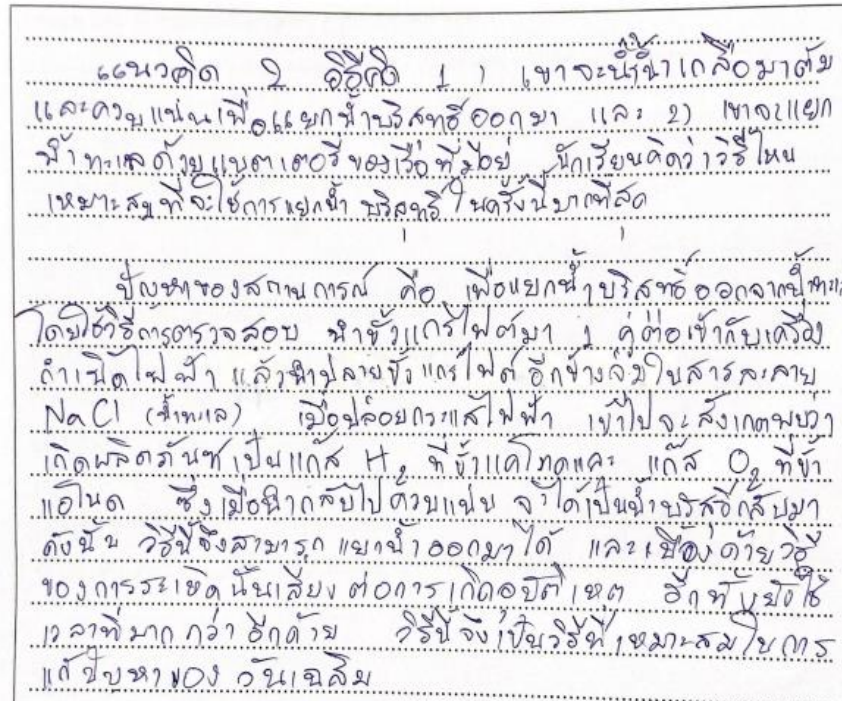 แนวคิด 2 วิธีคือ 1) เขาจะนำน้ำเกลือมาต้ม
และควบแน่นเพื่อแยกน้ำบริสุทธิ์ออกมา และ 2) เขาจะแยก
น้ำทะเลด้วยแบตเตอรี่ของเรือที่มีอยู่ นักเรียนคิดว่าวิธีไหน
เหมาะสมที่จะใช้การแยกน้ำ บริสุทธิ์ในครั้งนี้มากที่สุด
ปัญหาของสถานการณ์ คือ เพื่อแยกน้ำบริสุทธิ์ออกจากน้ำทะเล
โดยใช้วิธีการตรวจสอบ นำขั้วแกรไฟต์มา 1 คู่ต่อเข้ากับเครื่อง
กำเนิดไฟฟ้า แล้วนำปลายขั้วแกรไฟต์อีกข้างจุ่มในสารละลาย
NaCl (น้ำทะเล) เมื่อปล่อยกระแสไฟฟ้า เข้าไปจะสังเกตพบว่า
เกิดผลิตภัณฑ์เป็นแก๊ส H₂ ที่ขั้วแคโทดและ แก๊ส O₂ ที่ขั้ว
แอโนด ซึ่งเมื่อนำกลับไปควบแน่น จะได้เป็นน้ำบริสุทธิ์กลับมา
ดังนั้น วิธีนี้จึงสามารถ แยกน้ำออกมาได้ และเนื่องด้วยวิธี
ของการระเหิดนั้นเสี่ยงต่อการเกิดอุบัติเหตุ อีกทั้งยังใช้
เวลาที่มากกว่าอีกด้วย วิธีนี้จึงเป็นวิธีที่เหมาะสมในการ
แก้ปัญหาของ วันเฉลิม